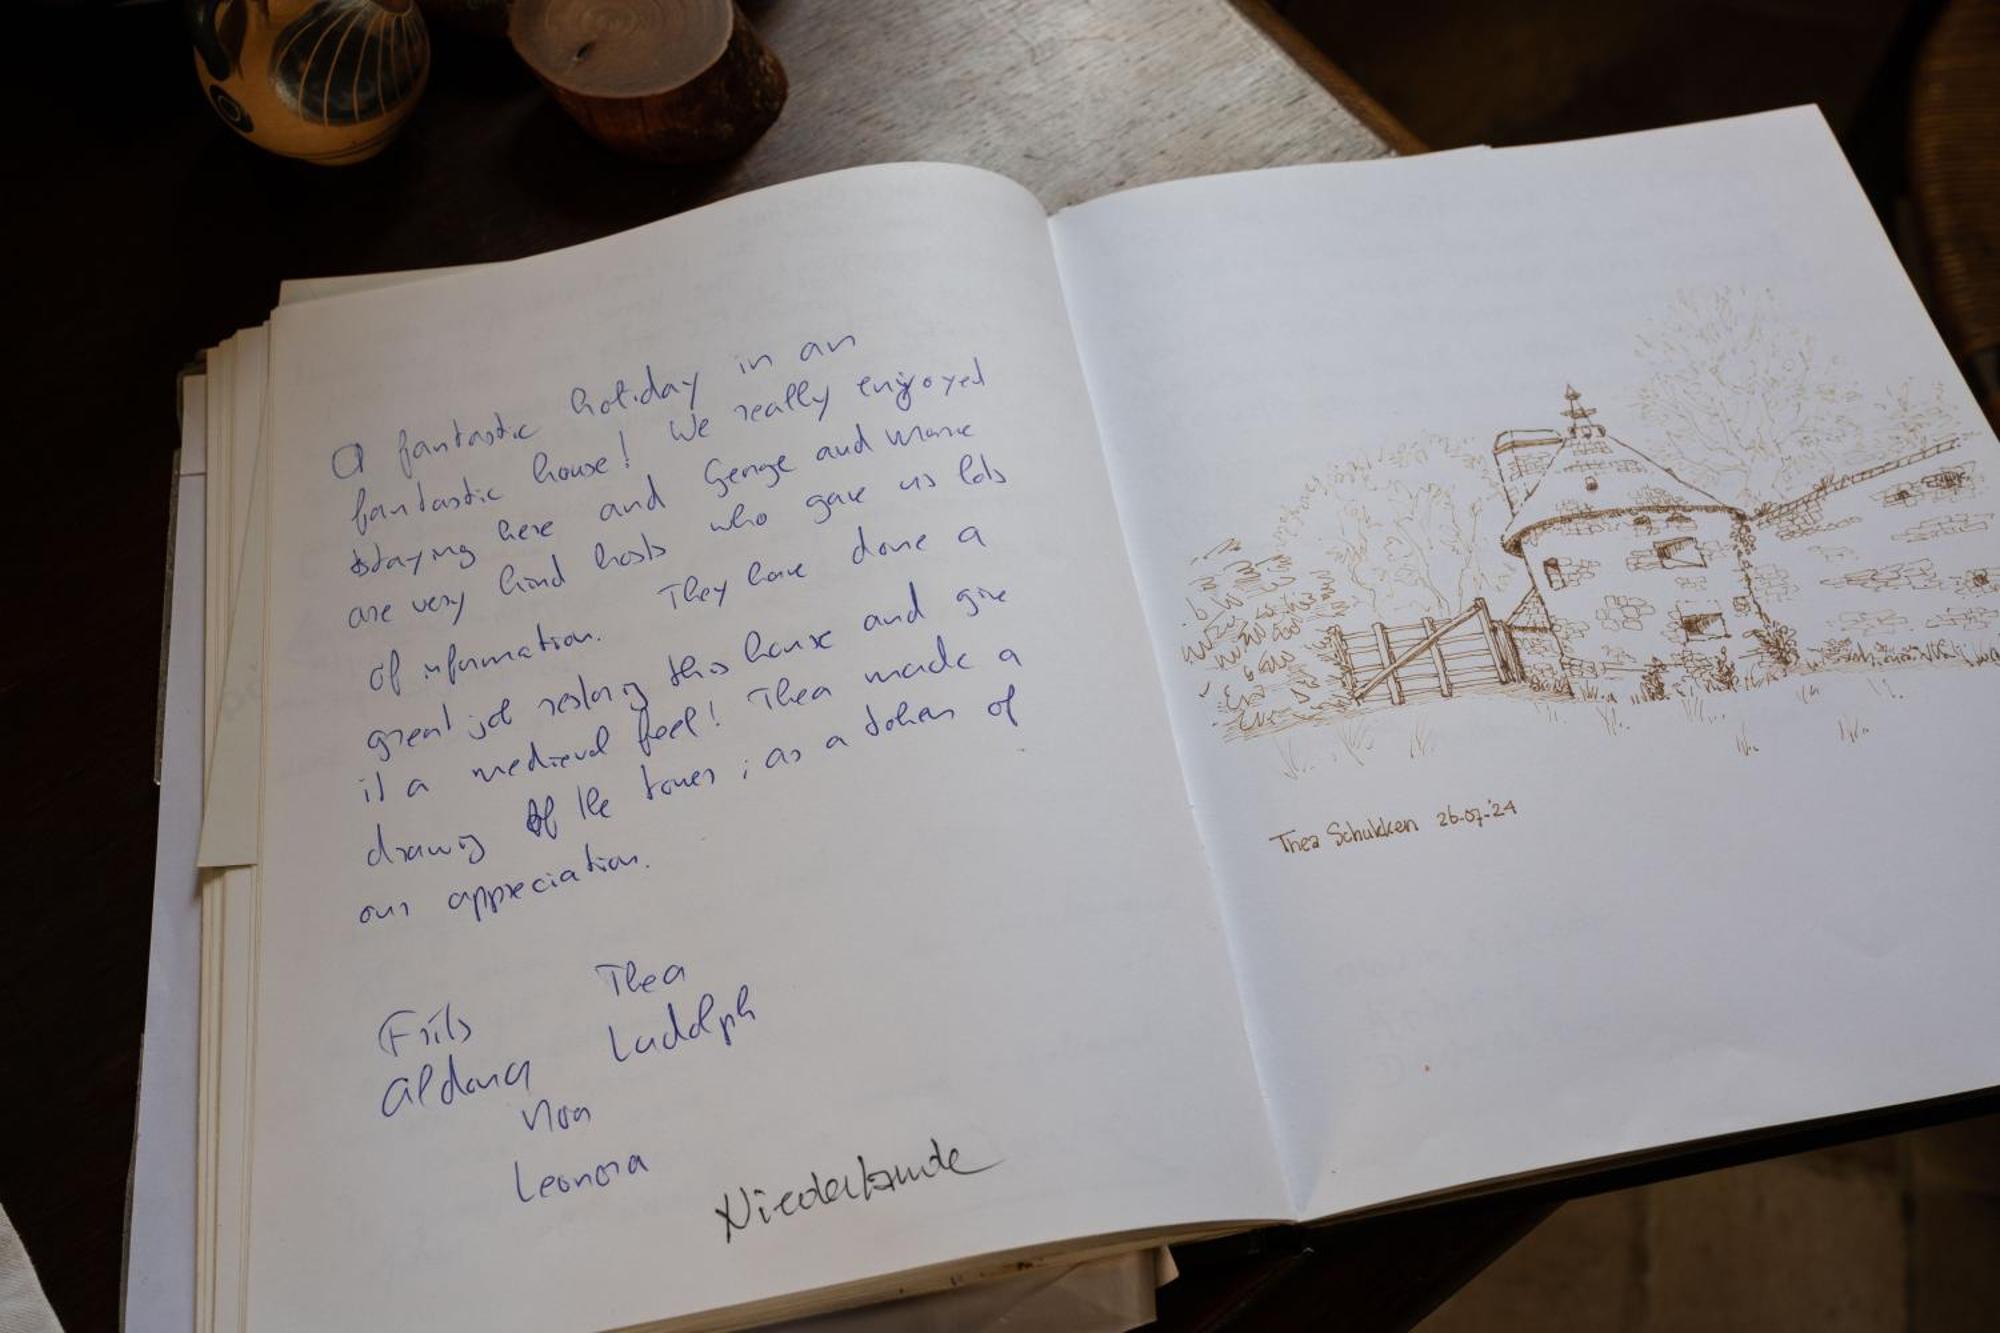 A fantastic holiday in an
fantastic house! We really enjoyed
staying here and George and Marie
are very kind hosts who gave us lots
of information. They have done a
great job restoring this house and give
it a medieval feel! Thea made a
drawing of the tower, as a token of
our appreciation.
Frits Thea
Aldona Ludolph
Noa
Leonora
Thea Schukken 26-07-'24